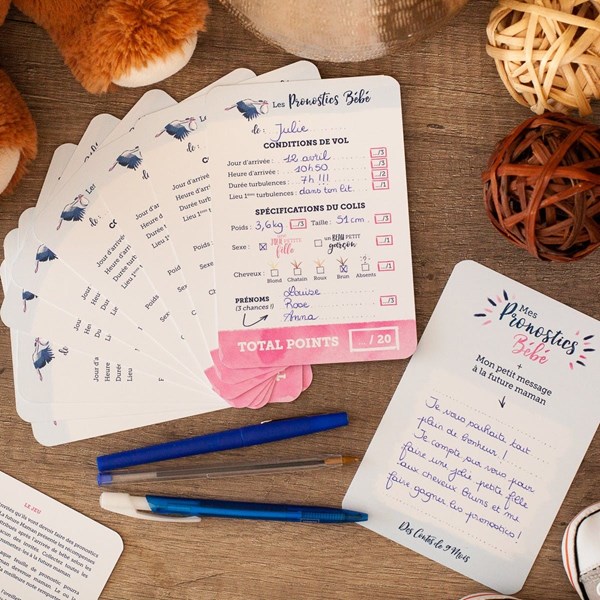 Les Pronostics Bébé
de : Julie
CONDITIONS DE VOL
Jour d'arrivée : 12 avril …/3
Heure d'arrivée : 10h50 …/3
Durée turbulences : 7h !!! …/2
Lieu 1ères turbulences : dans ton lit. …/1
SPÉCIFICATIONS DU COLIS
Poids : 3,6kg …/3 Taille : 51cm …/3
Sexe : une JOLIE PETITE fille un BEAU PETIT garçon …/1
Cheveux : …/1
Blond Châtain Roux Brun Absents
PRÉNOMS
(3 chances !)
Louise
Rose
Anna
…/3
TOTAL POINTS … / 20
Les
de
Jour d'a
Heure d
Durée
Lieu
Mes
Pronostics
Bébé
+
Mon petit message
à la future maman
Je vous souhaite tout
plein de bonheur !
Je compte sur vous pour
faire une jolie petite fille
aux cheveux bruns et me
faire gagner les pronostics !
Des Contes de 9 Mois
LE JEU